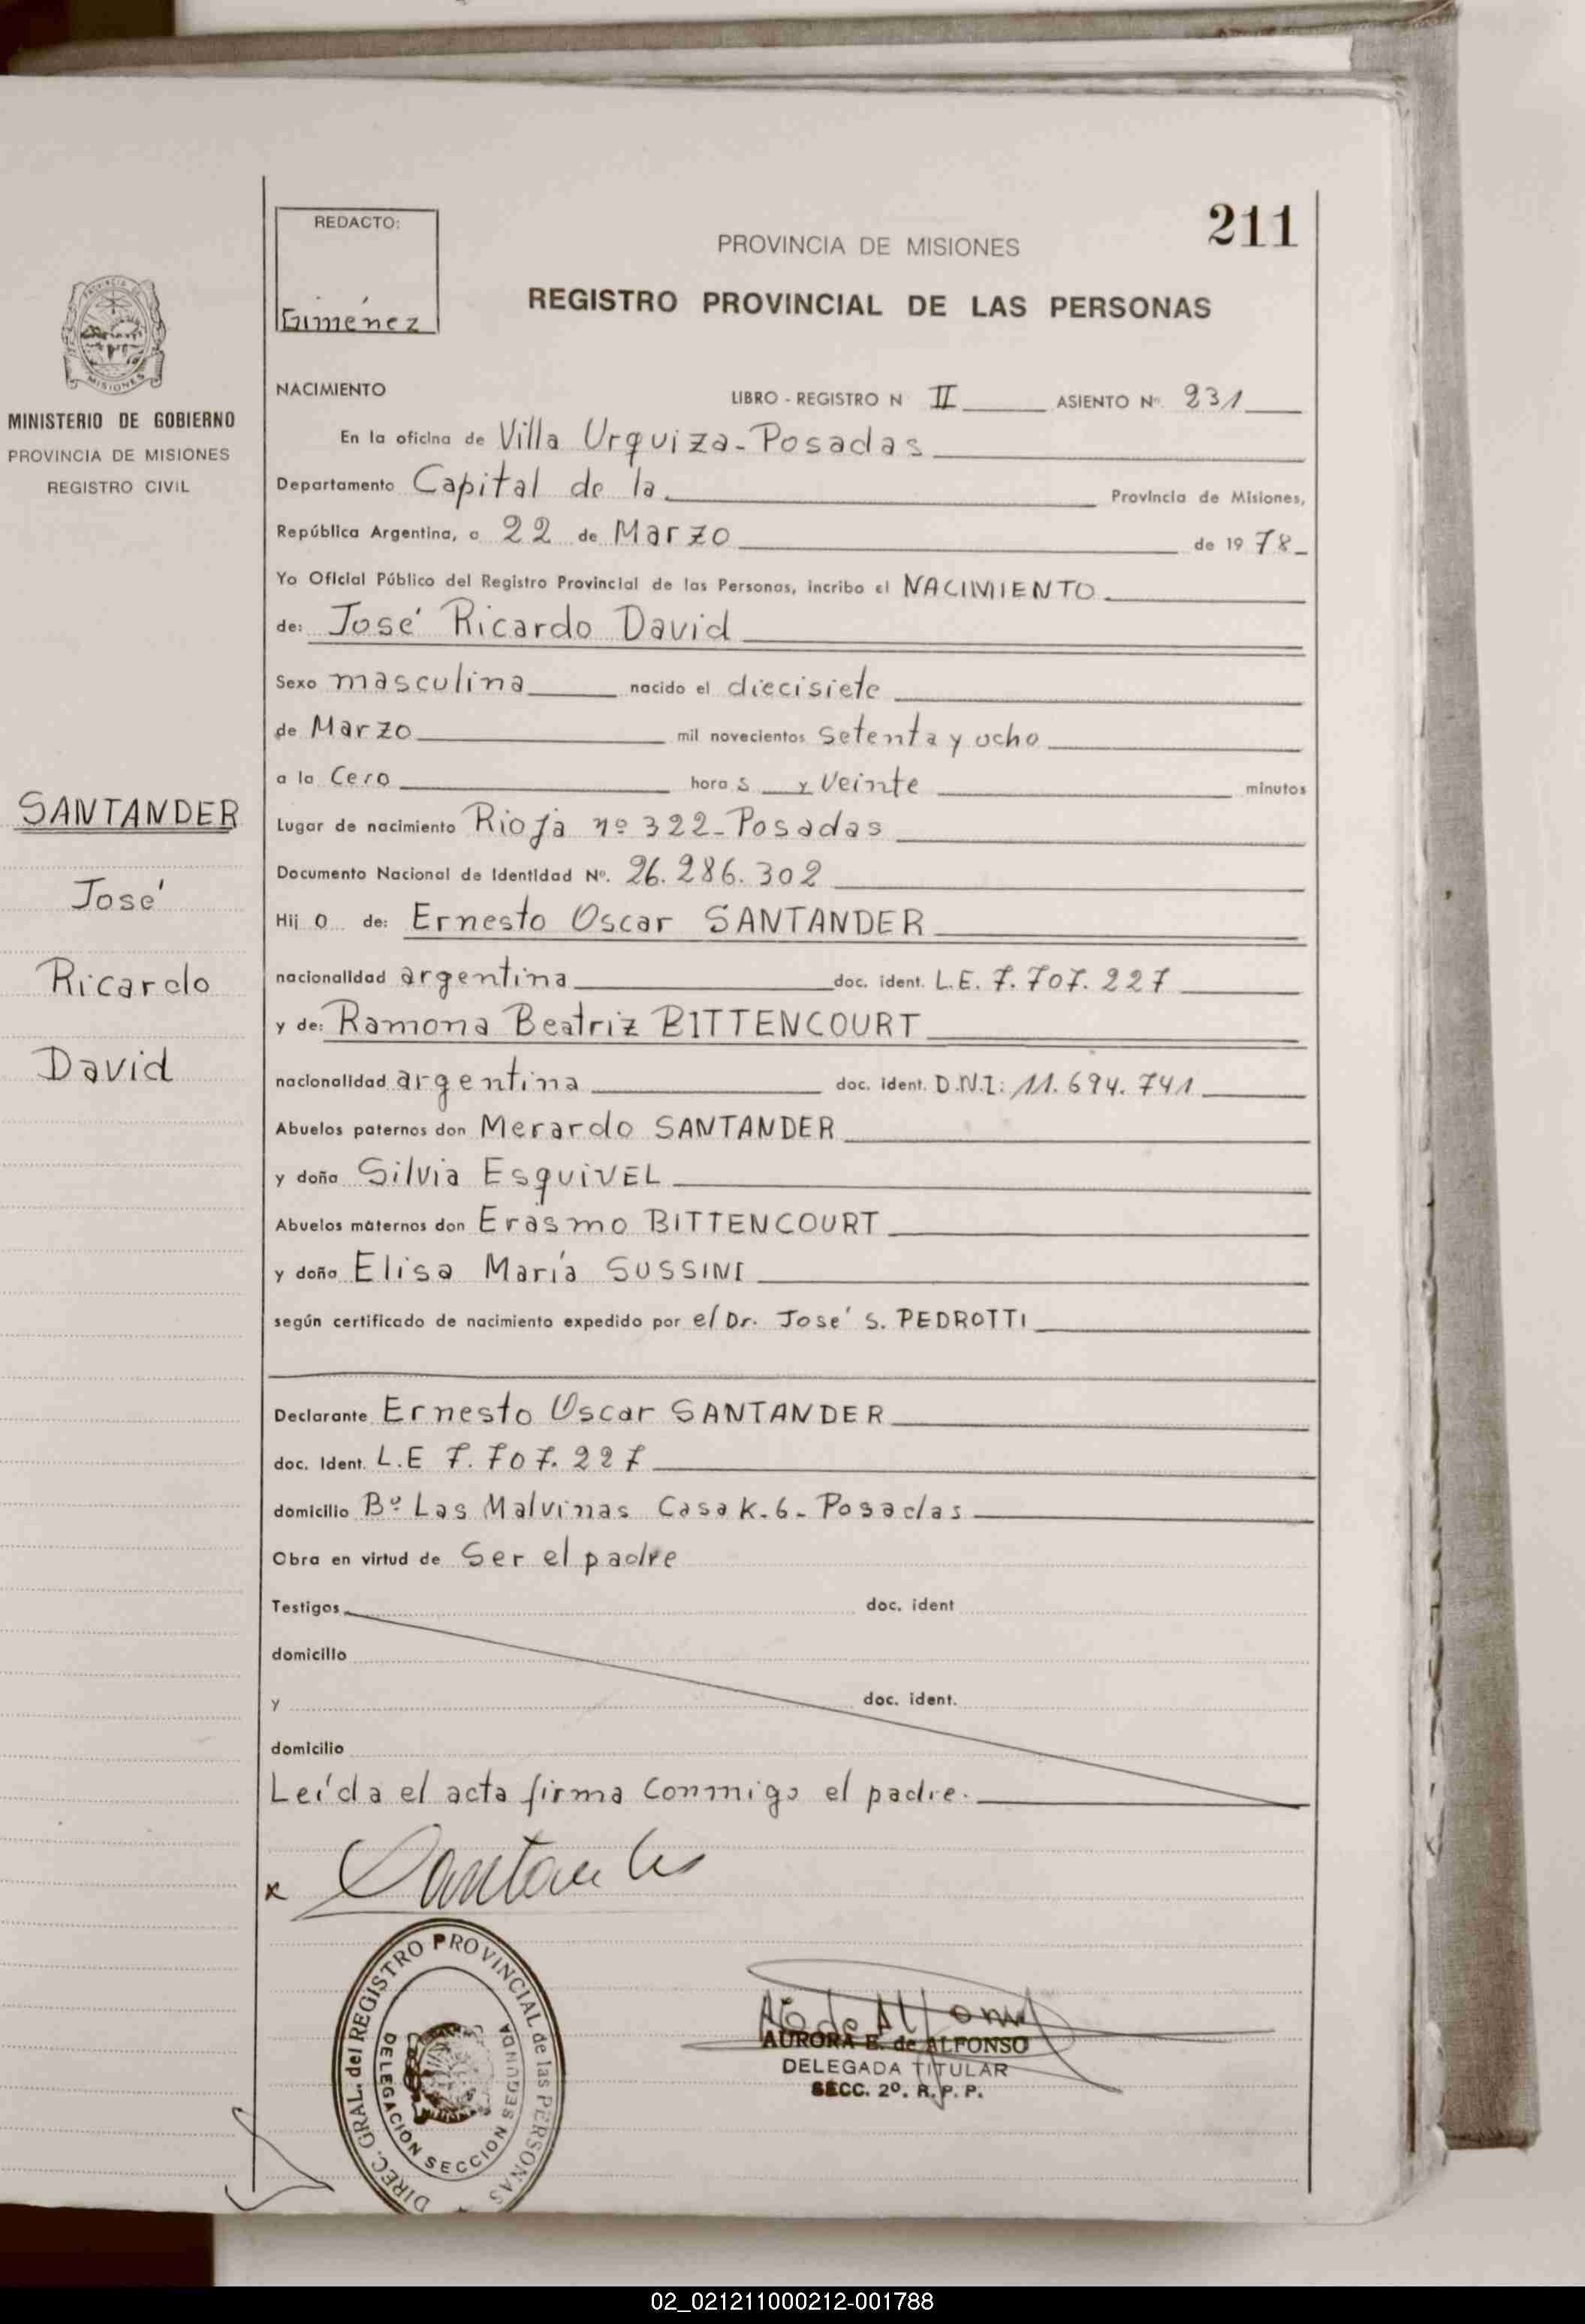 211
REDACTO:
Giménez
PROVINCIA DE MISIONES
REGISTRO PROVINCIAL DE LAS PERSONAS
MISIONES
MINISTERIO DE GOBIERNO
PROVINCIA DE MISIONES
REGISTRO CIVIL
SANTANDER
José
Ricardo
David
NACIMIENTO LIBRO - REGISTRO N II ASIENTO Nº 231
En la oficina de Villa Urquiza-Posadas
Departamento Capital de la Provincia de Misiones,
República Argentina, a 22 de Marzo de 1978
Yo Oficial Público del Registro Provincial de las Personas, incribo el NACIMIENTO
de: José Ricardo David
Sexo masculina nacido el diecisiete
de Marzo mil novecientos setenta y ocho
a la Cero hora s y Veinte minutos
Lugar de nacimiento Rioja nº 322-Posadas
Documento Nacional de Identidad Nº. 26.286.302
Hij o de: Ernesto Oscar SANTANDER
nacionalidad argentina doc. ident. L.E. 7.707.227
y de: Ramona Beatriz BITTENCOURT
nacionalidad argentina doc. ident. D.N.I: 11.694.741
Abuelos paternos don Merardo SANTANDER
y doña Silvia EsquiVEL
Abuelos maternos don Erasmo BITTENCOURT
y doña Elisa María SUSSINI
según certificado de nacimiento expedido por el Dr. José S. PEDROTTI
Declarante Ernesto Oscar SANTANDER
doc. Ident. L.E 7.707.227
domicilio Bº Las Malvinas Casa K-6- Posadas
Obra en virtud de Ser el padre
Testigos doc. ident
domicilio
y doc. ident.
domicilio
Leída el acta firma Conmigo el padre.
x Santander
DIREC. GRAL. del REGISTRO PROVINCIAL de las PERSONAS
DELEGACION SECCION SEGUNDA
AE de Alfonso
AURORA E. de ALFONSO
DELEGADA TITULAR
SECC. 2º. R. P. P.
02_021211000212-001788